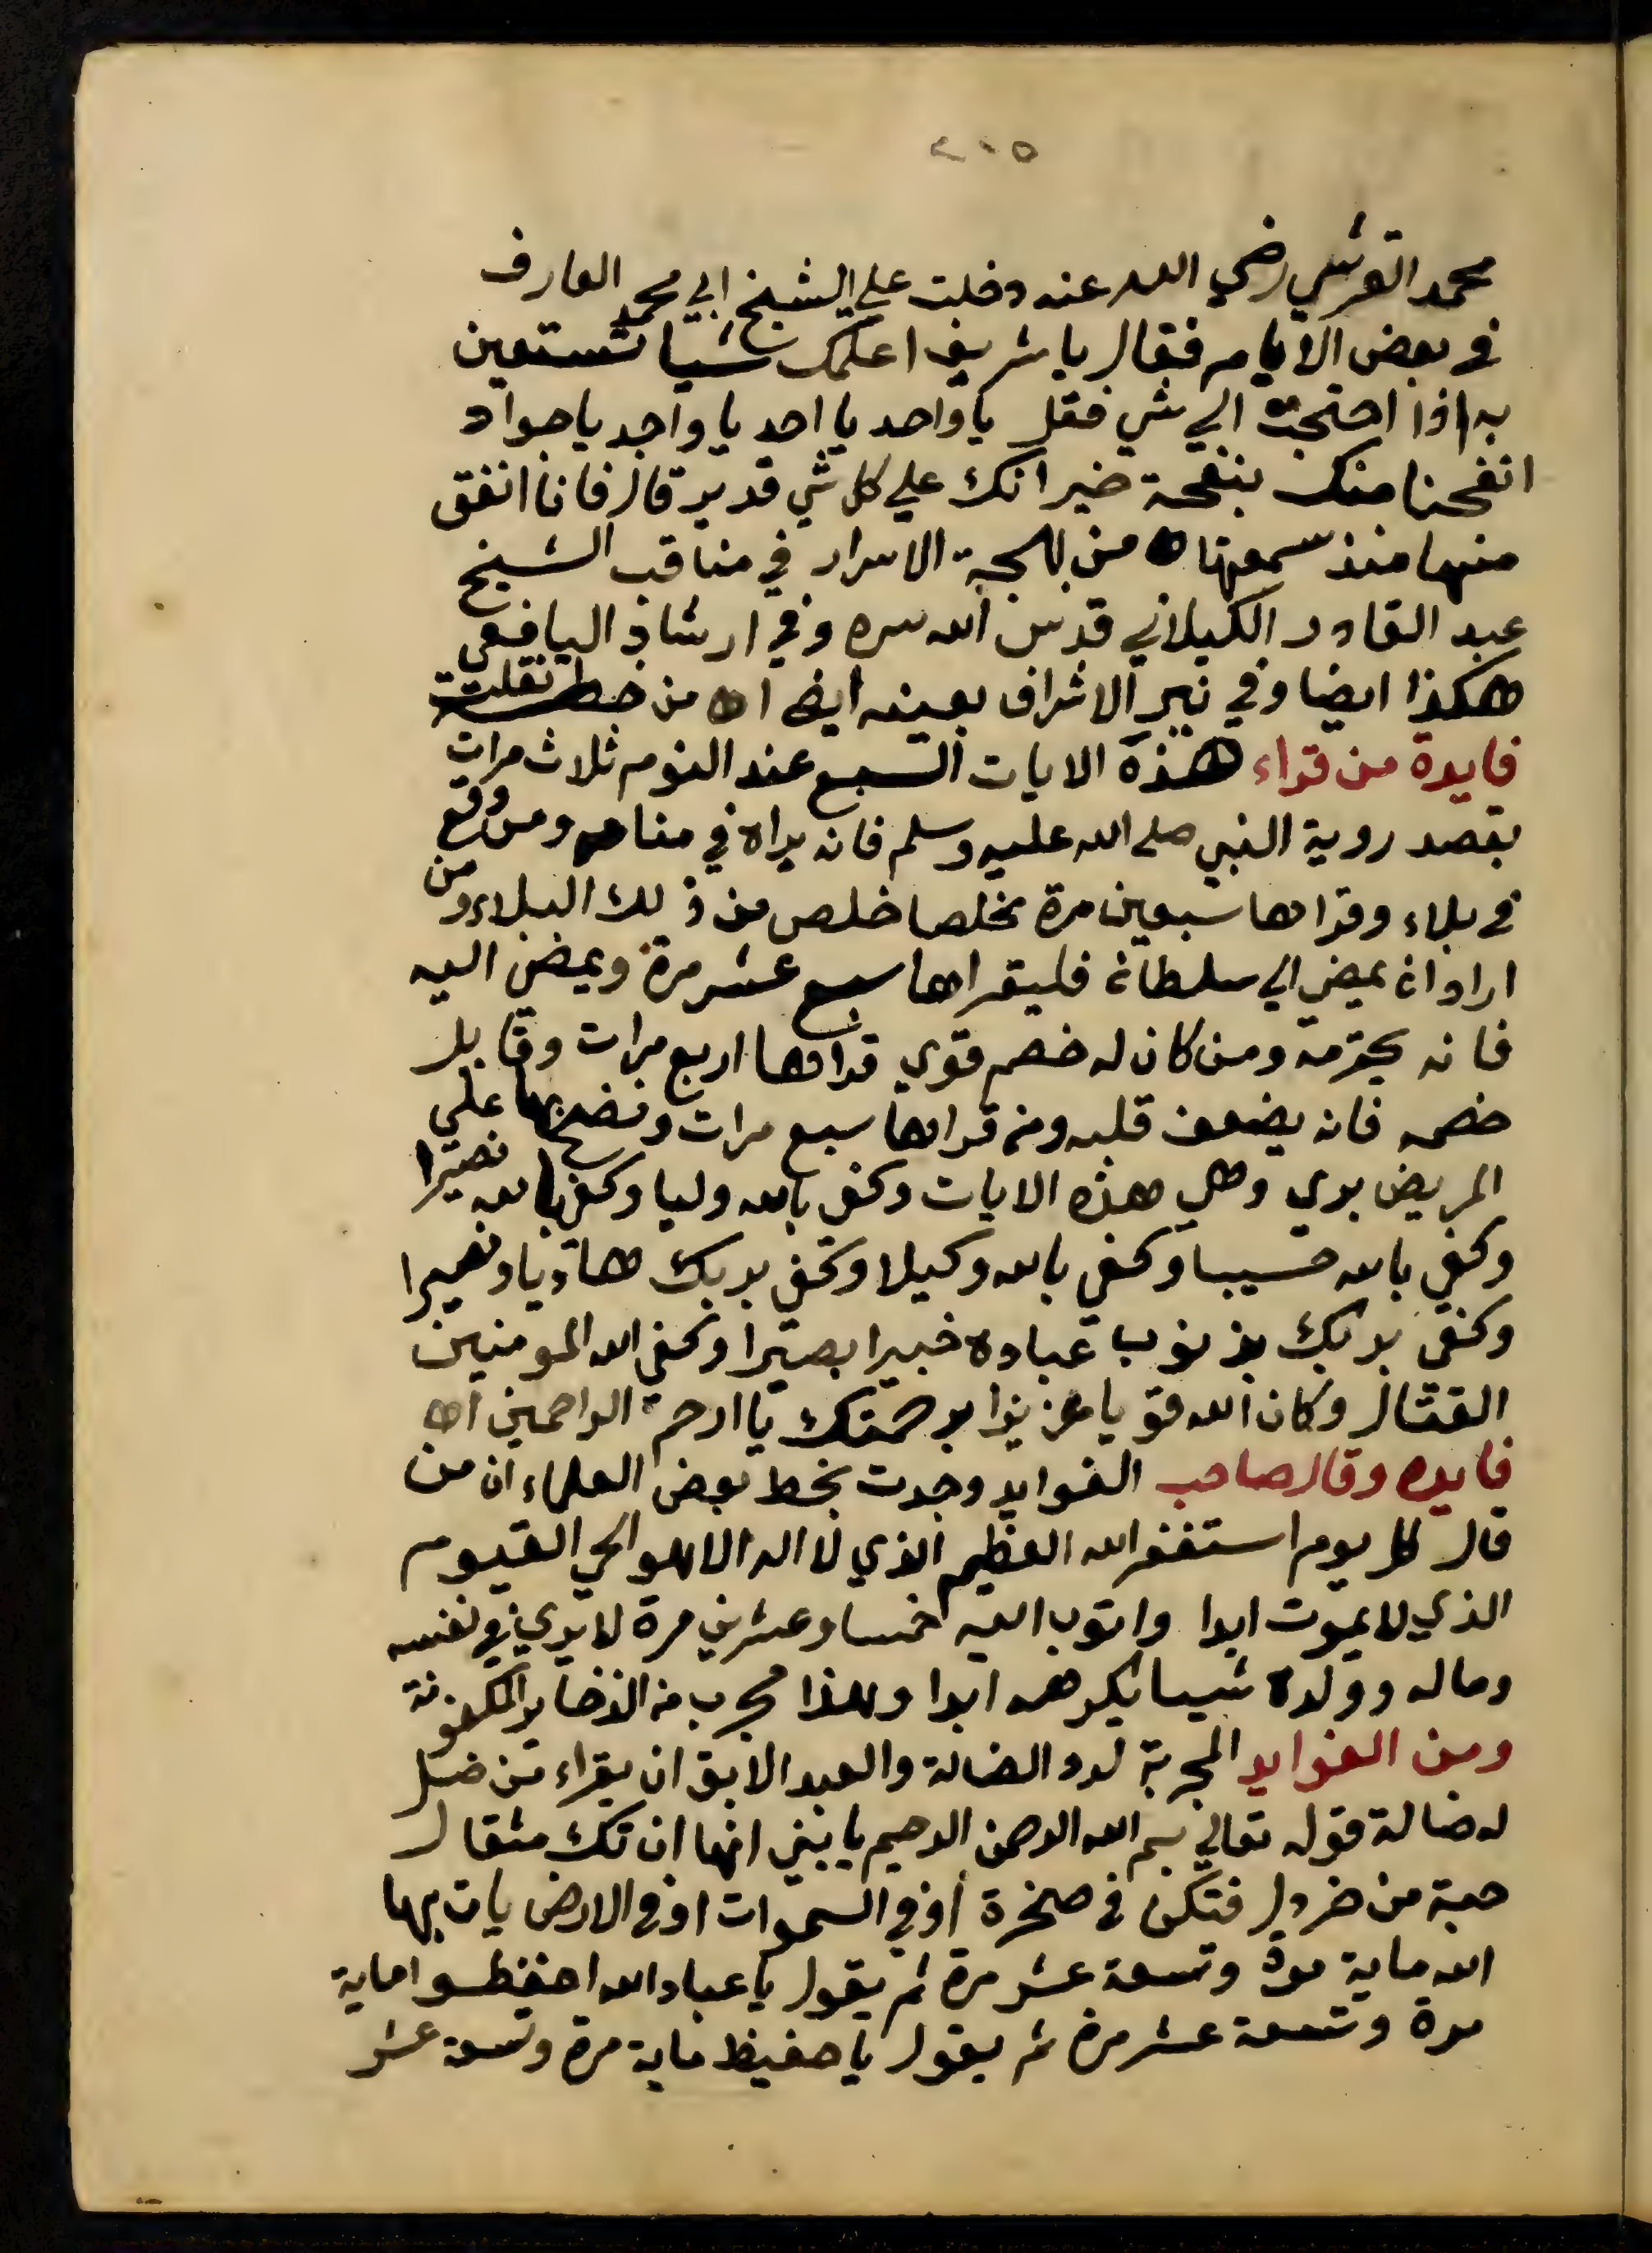 ٢٠٥
محمد القرشي رضي الله عنه دخلت علي الشيخ ابي محمد العارف
في بعض الايام فقال يا شريف اعلمك شيا تستعين
به اذا احتجت الي شي فقل يا واحد يا احد يا واجد يا جواد
انفحنا منك بنفحة خير انك علي كل شي قدير قال فانا انفق
منها منذ سمعتها اه من بهجة الاسرار في مناقب الشيخ
عبد القادر الكيلاني قدس الله سره وفي ارشاد اليافعي
هكذا ايضا وفي نير الاشراف بعينه ايضا اه من خط نقلت
فايدة من قراء هذه الايات السبع عند النوم ثلاث مرات
بقصد روية النبي صلي الله عليه وسلم فانه يراه في منامه ومن وقع
في بلاء وقراها سبعين مرة مخلصا خلص من ذلك البلاء ومن
اراد ان يمضي الي سلطان فليقراها سبع عشر مرة ويمضي اليه
فانه يحترمه ومن كان له خصم قوي قراها اربع مرات وقابل
خصمه فانه يضعف قلبه ومن قراها سبع مرات ونضح بها علي
المريض بري وهي هذه الايات وكفي بالله وليا وكفي بالله نصيرا
وكفي بالله حسيبا وكفي بالله وكيلا وكفي بربك هاديا ونصيرا
وكفي بربك بذنوب عباده خبيرا بصيرا وكفي الله المومنين
القتال وكان الله قويا عزيزا برحمتك يا ارحم الراحمين اه
فايده وقال صاحب الفوايد وجدت بخط بعض العلماء ان من
قال كل يوم استغفر الله العظيم الذي لا اله الا هو الحي القيوم
الذي لا يموت ابدا واتوب اليه خمسا وعشرين مرة لا يري في نفسه
وماله وولده شيا يكرهه ابدا وهذا مجرب من الذخاير المكنونة
ومن الفوايد المجربة لرد الضالة والعبد الابق ان يقراء من ضل
له ضالة قوله تعالي بسم الله الرحمن الرحيم يا بني انها ان تك مثقال
حبة من خردل فتكن في صخرة او في السموات او في الارض يات بها
الله ماية مرة وتسعة عشر مرة ثم يقول يا عباد الله احفظوا ماية
مرة وتسعة عشر مرة ثم يقول يا حفيظ ماية مرة وتسعة عشر